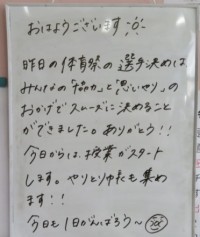 おはようございます
昨日の体育祭の選手決めは
みんなの「協力」と「思いやり」の
おかげでスムーズに決めること
ができました。ありがとう!!
今日からは、授業がスタート
します。やりとり帳も集め
ます!!
今日も1日がんばろう〜